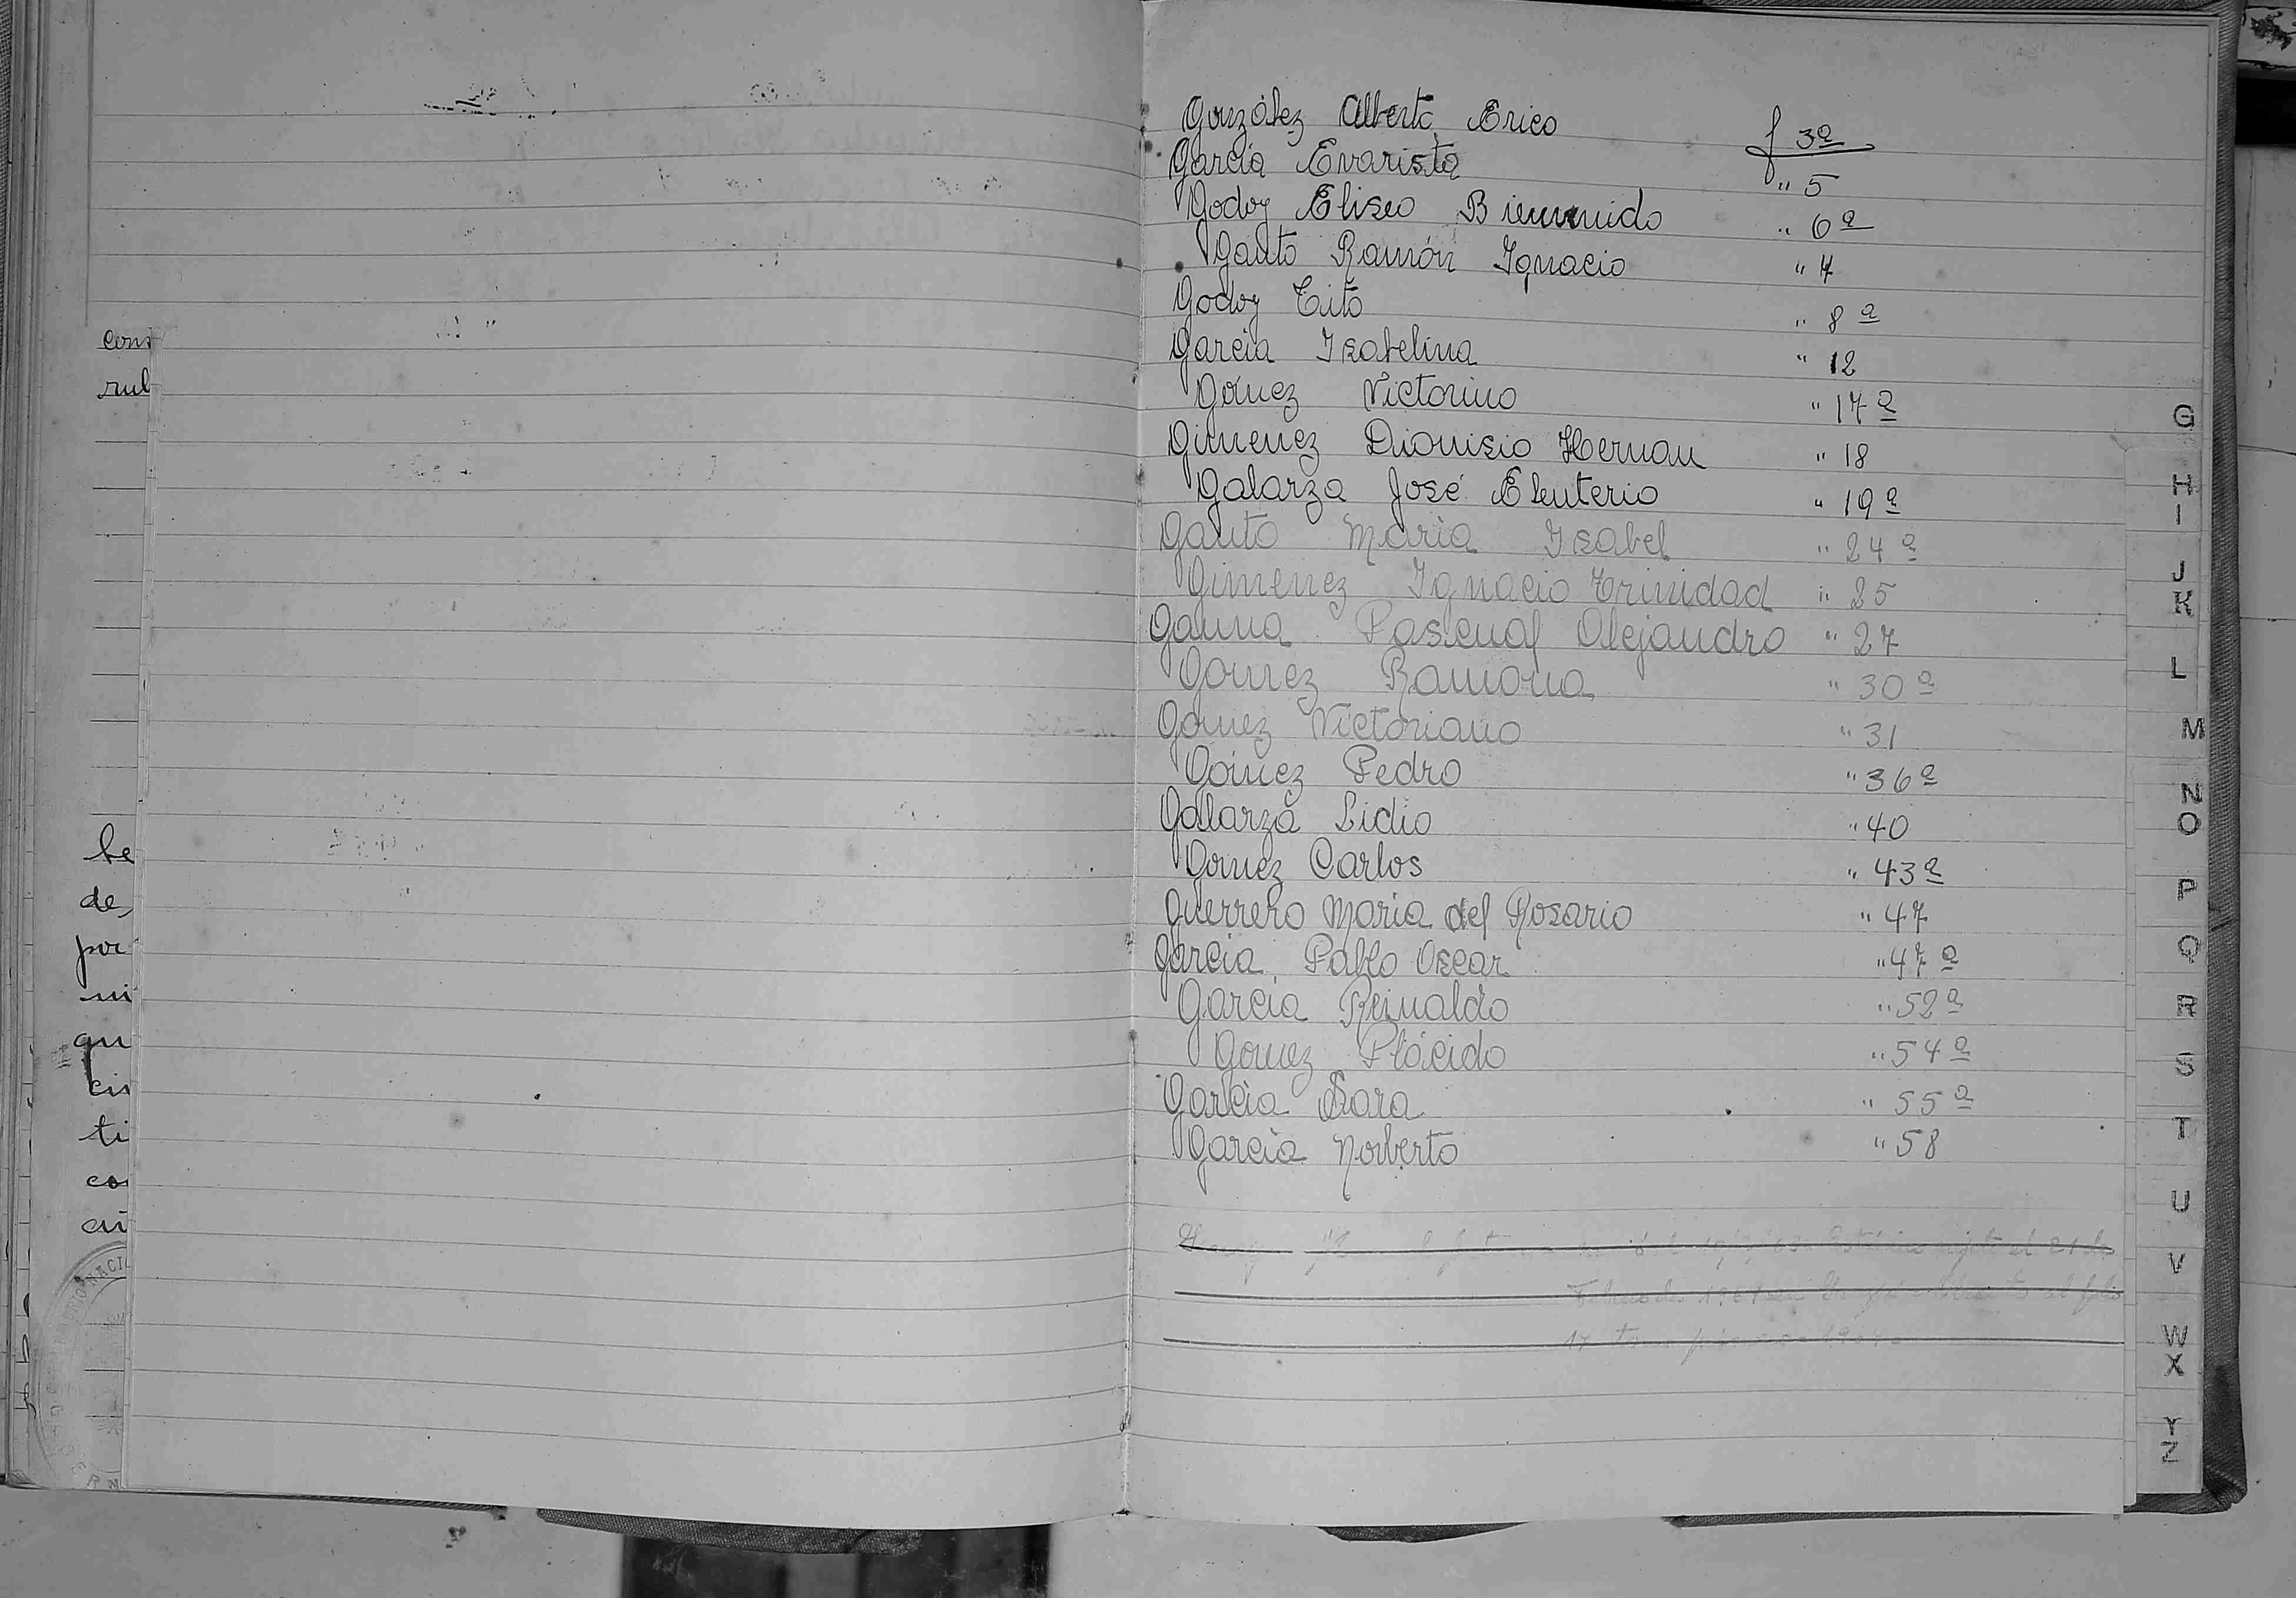 com
rul
be
de,
por
ni
qu
cis
ti
co
ai
González Alberto Erico f 3ª
Garcia Evarista " 5
Godoy Eliseo Bienvenido " 6ª
Gauto Ramón Ignacio " 7
Godoy Tito " 8ª
Garcia Isabelina " 12
Gómez Victorino " 17ª
Gimenez Dionisio Hernan " 18
Galarza José Eleuterio " 19ª
Gauto Maria Isabel " 24ª
Gimenez Ignacio Trinidad " 25
Gauna Pascual Alejandro " 27
Gomez Ramona " 30ª
Gomez Victoriano " 31
Gómez Pedro " 36ª
Galarza Lidio " 40
Gomez Carlos " 43ª
Guerrero Maria del Rosario " 47
Garcia Pablo Oscar " 47ª
Garcia Reinaldo " 52ª
Gomez Plácido " 54ª
Garcia Sara " 55ª
Garcia Norberto " 58
el 21 de
al folio
17
G
H
I
J
K
L
M
N
O
P
Q
R
S
T
U
V
W
X
Y
Z